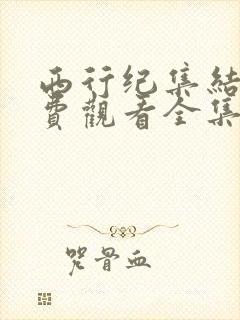 西行纪集结
费觀看全集
咒骨血